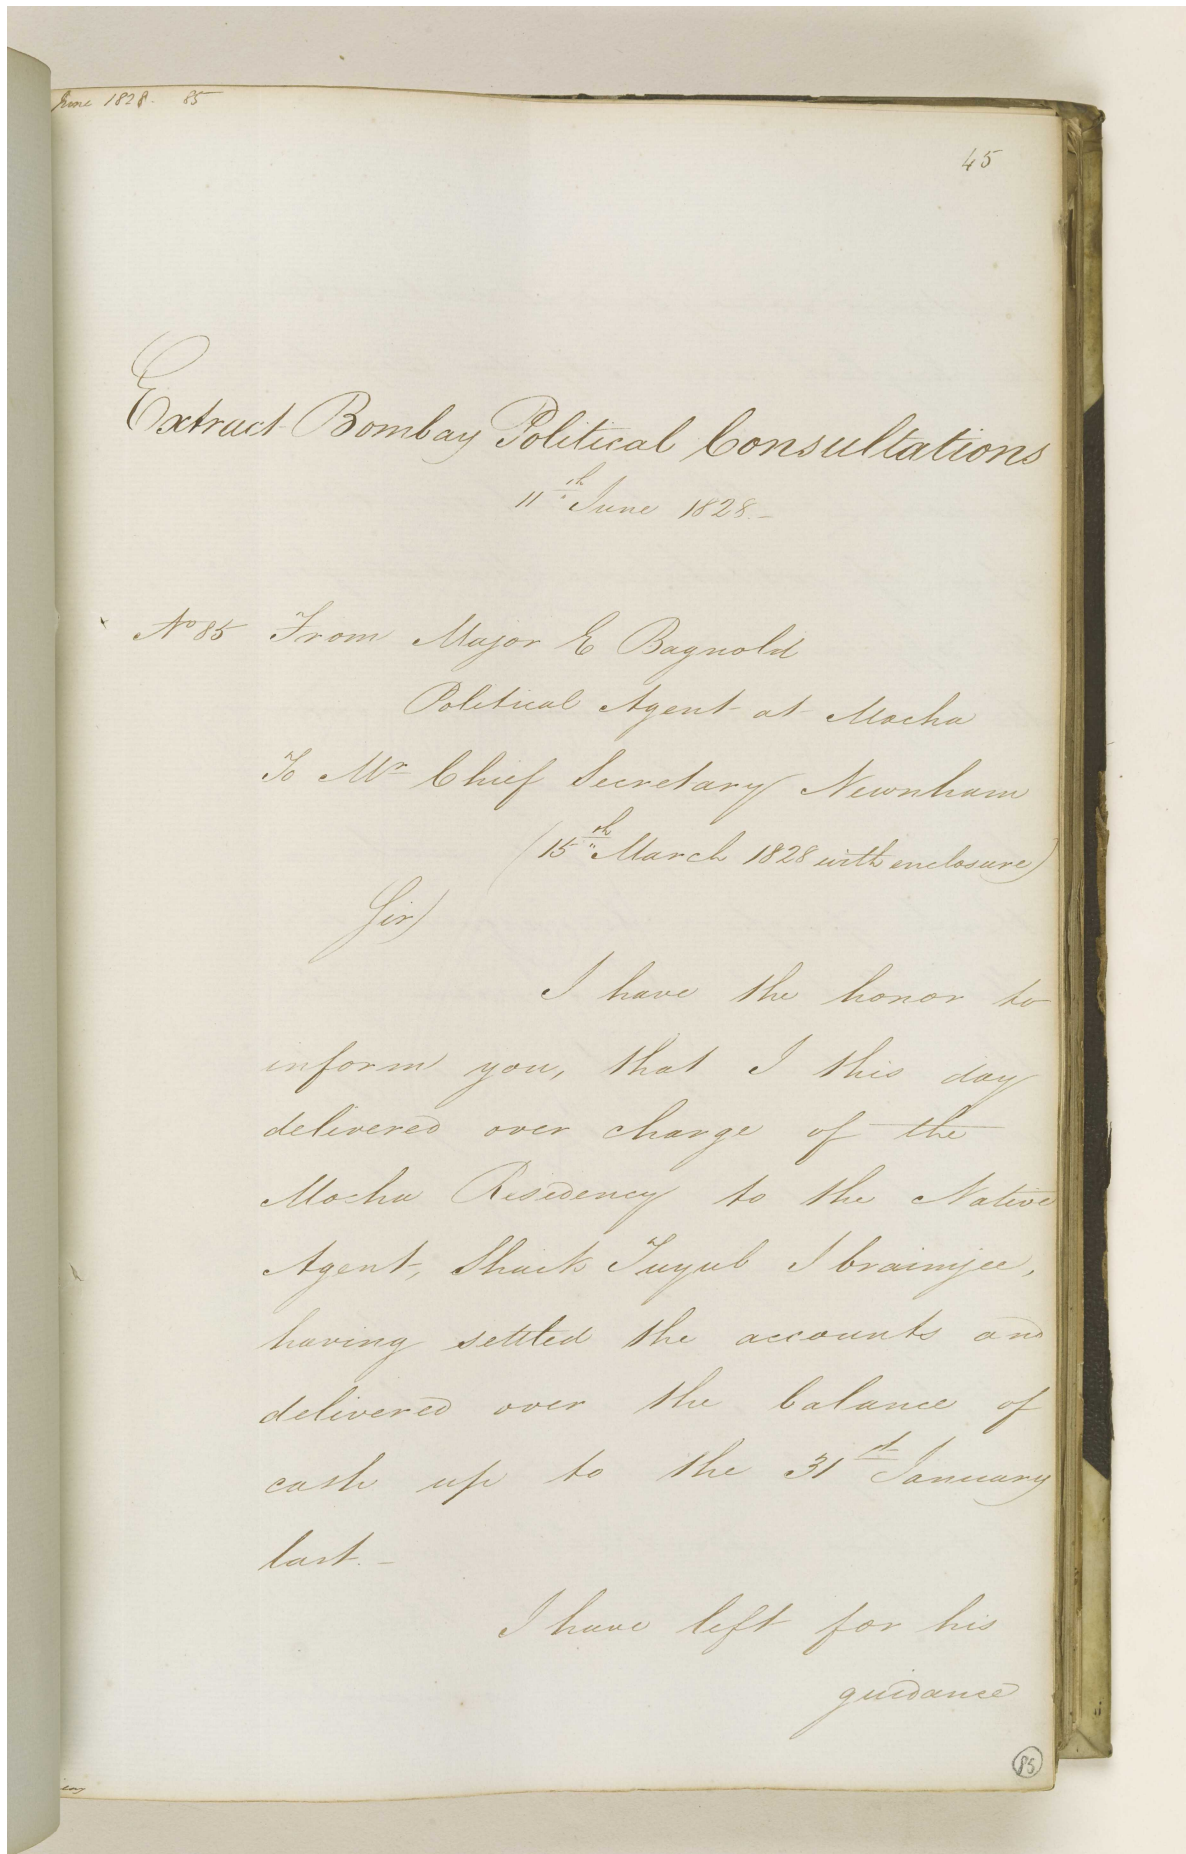 June 1828. 85
45
Extract Bombay Political Consultations
11th June 1828.—
No 85 From Major E Bagnold
Political Agent at Mocha
To Mr Chief Secretary Newnham
(15th March 1828 with enclosure)
Sir
I have the honor to
inform you, that I this day
delivered over charge of the
Mocha Residency to the Native
Agent, Shaik Tuyub Ibraimjee,
having settled the accounts and
delivered over the balance of
cash up to the 31st January
last.—
I have left for his
guidance
85